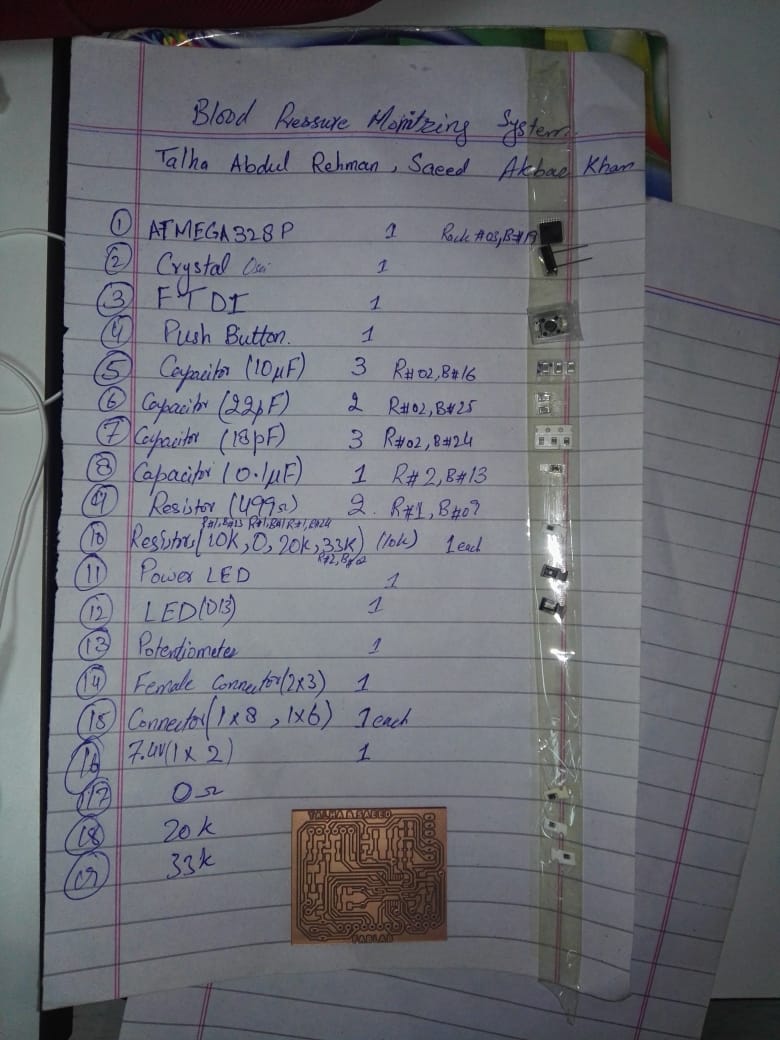 Blood Pressure Monitring System
Talha Abdul Rehman, Saeed Akbar Khan
① ATMEGA328P 1 Rack #03, B#19
② Crystal Osi 1
③ FTDI 1
④ Push Button. 1
⑤ Capacitor (10µF) 3 R#02, B#16
⑥ Capacitor (22pF) 2 R#02, B#25
⑦ Capacitor (18pF) 3 R#02, B#24
⑧ Capacitor (0.1µF) 1 R#2, B#13
⑨ Resistor (499Ω) 2. R#1, B#09
R#1, B#23 R#1, B#1 R#1, B#24
⑩ Resistors (10k, 0, 20k, 33k) (10k) 1 each
R#2, B#02
⑪ Power LED 1
⑫ LED (D13) 1
⑬ Potentiometer 1
⑭ Female Connector (2x3) 1
⑮ Connector (1x8, 1x6) 1 each
⑯ 7.4V (1x2) 1
⑰ 0Ω
⑱ 20k
⑲ 33k
TALHA & SAEED
FABLAB